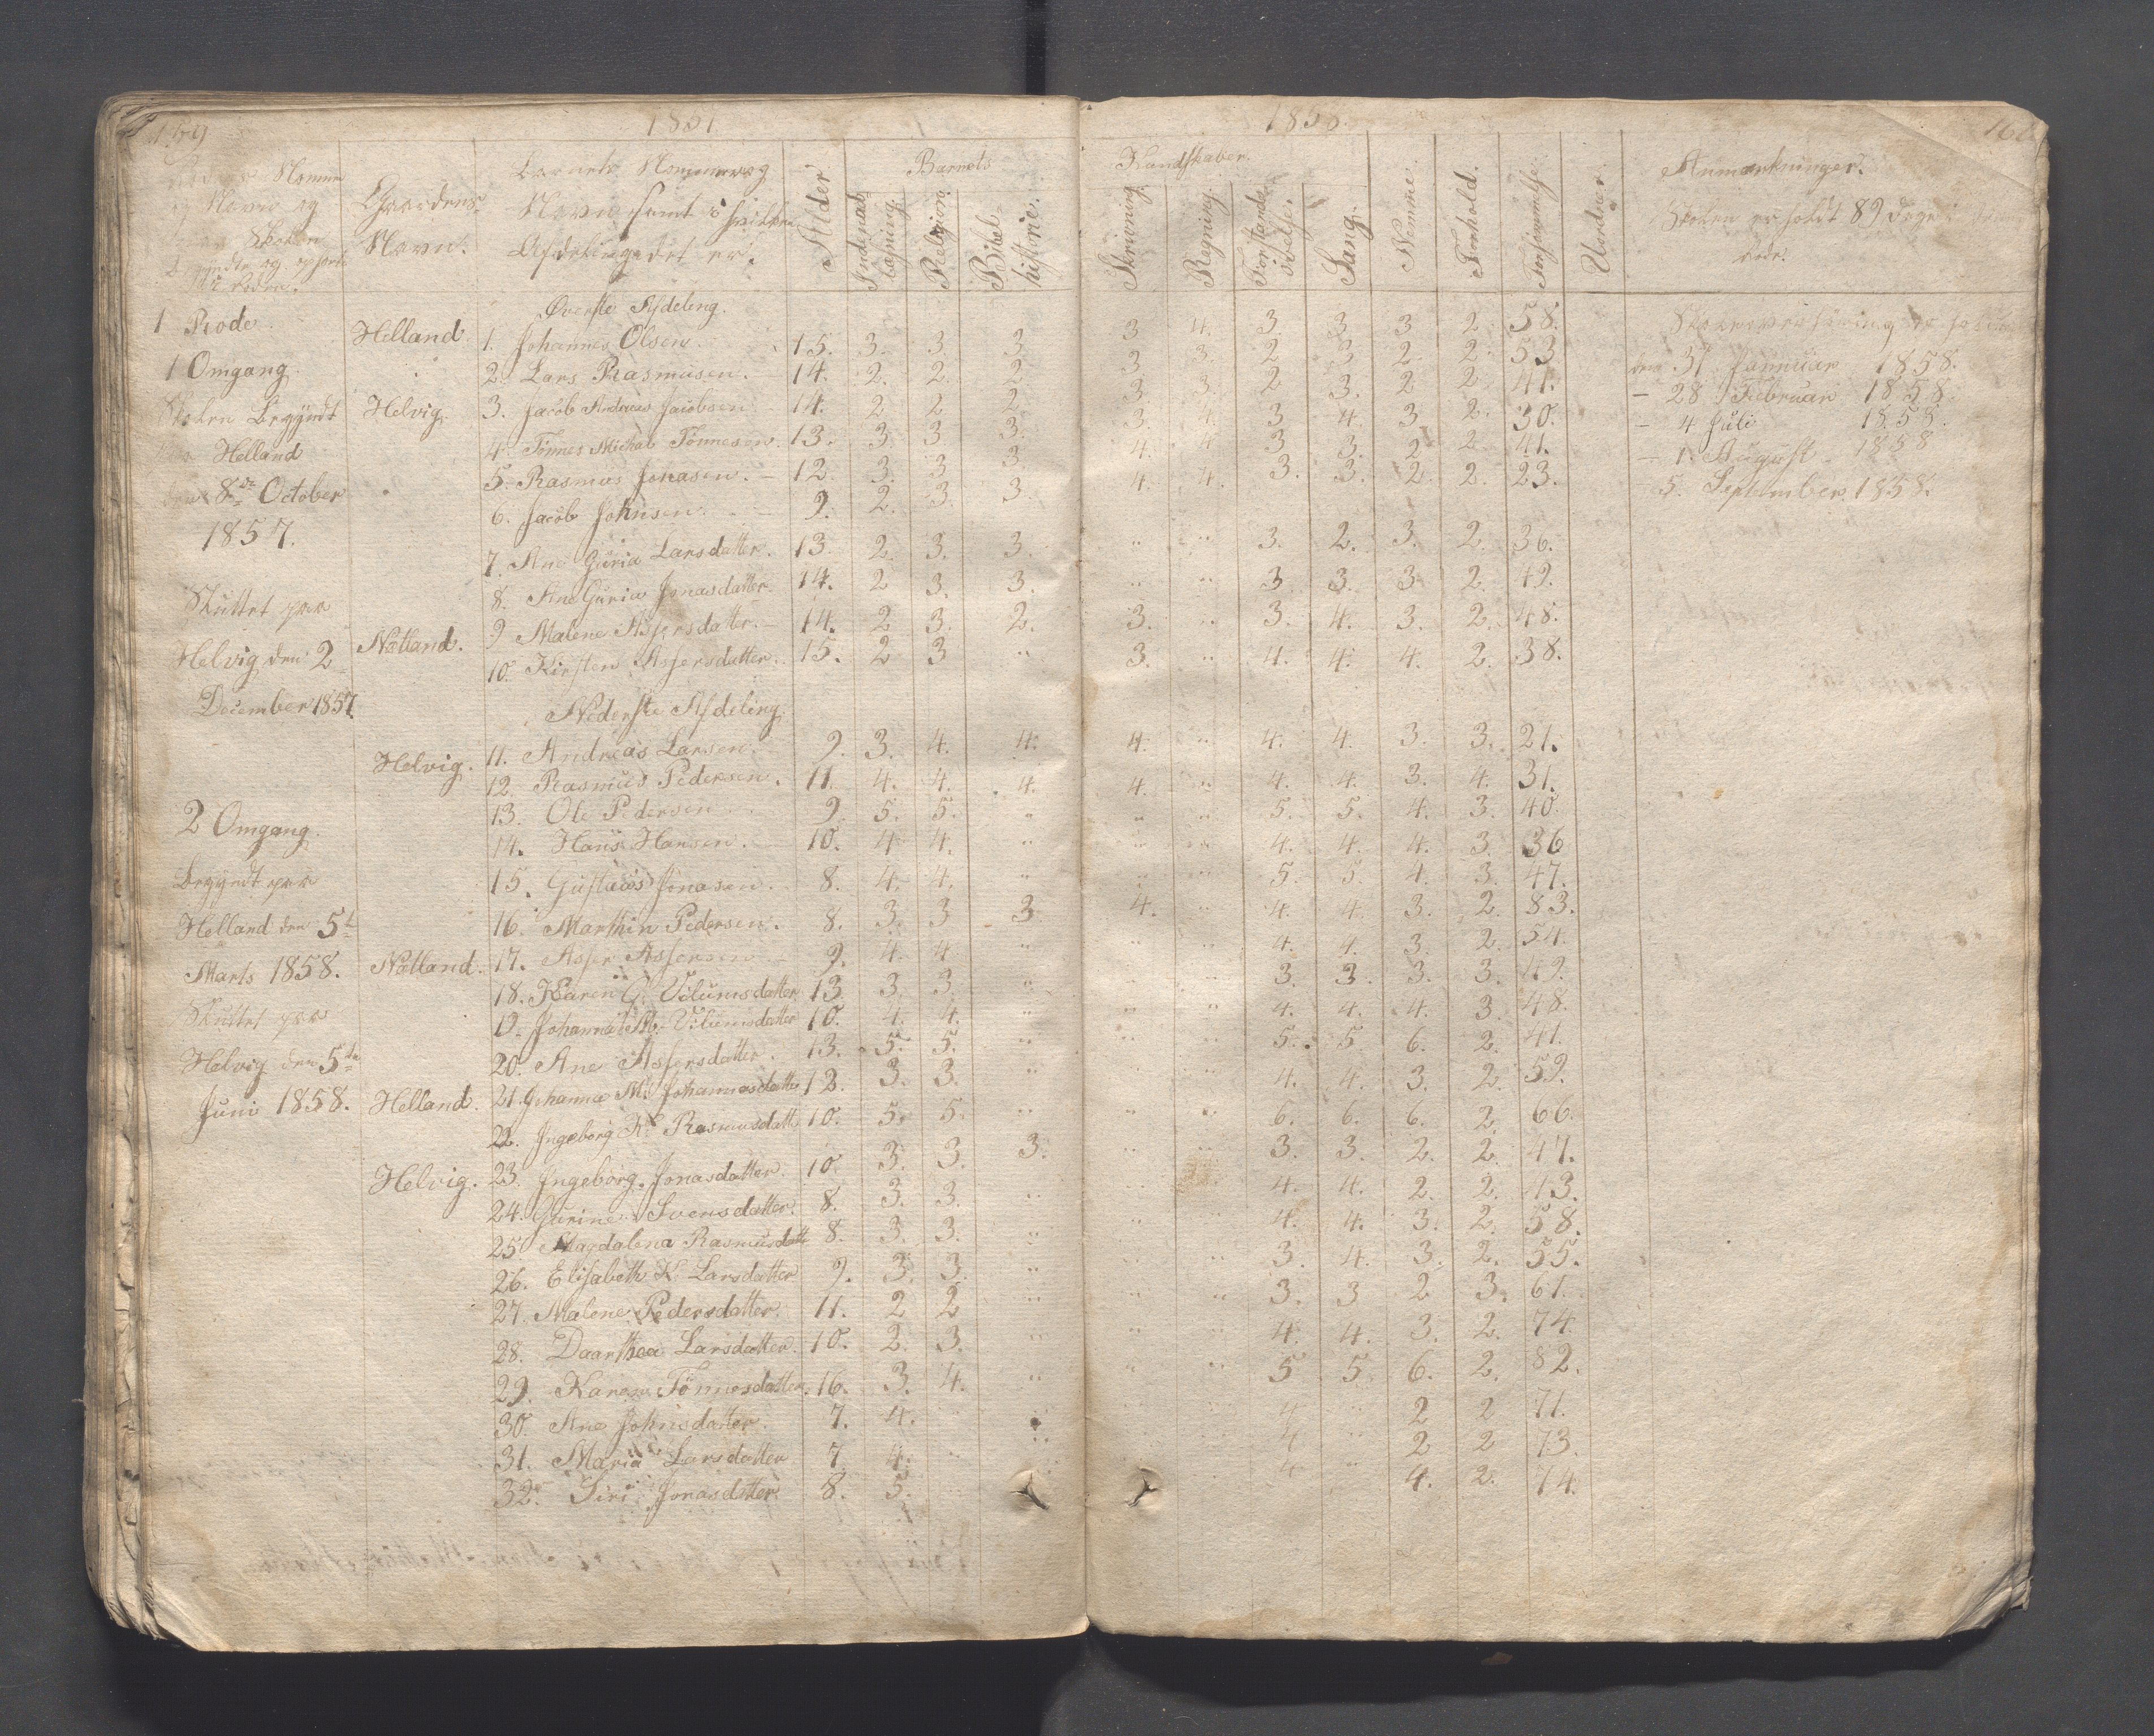 159
1857
1858.
Gaardens Navn.
Barnets
Afdeling det er.
Alder
Barnets
Religion.
Bibelhistorie.
Kundskaber.
Skrivning.
Regning.
Sang.
Nemme.
Forhold.
Forsømmelse.
Anmærkninger.
Skolen er holdt 89 Dage i denne
Rode.
1 Rode.
1 Omgang.
Skolen Begyndt
paa Helland
den 8de October
1857.
Skuttet paa
Helvig den 2
December 1857.
2 Omgang.
Begyndt paa
Helland den 5te
Marts 1858.
Skuttet paa
Helvig den 5te
Juni 1858.
Øverste Afdeling.
Helland. 1. Johannes Olsen. 15. 3. 3. 3 3 4. 3. 3. 3 2. 58.
2. Lars Rasmusen. 14. 2. 2. 2 3. 3. 2 3 2. 2. 53
Helvig. 3. Jacob Andreas Jacobsen 14. 2 2 2. 3. 3. 2 3. 2 2 41.
4. Tønnes Michal Tønnesen. 13. 3. 3 3. 3. 4. 3 4. 3. 2. 30.
5. Rasmus Jonasen. 12. 3. 3 3. 4. 4 3 3. 2 2. 41.
6. Jacob Johnsen. 9. 2. 3. 3. 4. 4. 3. 3. 2. 2. 23.
7. Ane Guria Larsdatter. 13. 2 3. 3. " " 3. 2. 3. 2. 36.
8. Ane Guria Jonasdatter. 14. 2 3. 3. " " 3 3. 3. 2. 49.
Nætland. 9 Malene Assersdatter. 14. 2 3. 2. 3. " 3. 4. 3. 2. 48.
10. Kirsten Assersdatter. 15. 2 3 " 3. " 4. 4. 4. 2. 38.
Nederste Afdeling.
Helvig. 11. Andreas Larsen. 9. 3. 4. 4. 4. " 4. 4. 3. 3. 21.
12. Rasmus Pedersen. 11. 4. 4. 4. 4. " 4. 4. 3. 4. 31.
13. Ole Pedersen 9. 5. 5. " " " 5. 5. 4. 3. 40.
14. Hans Hansen. 10. 4 4. " " " 4. 4. 4. 3. 36
15. Gustavus Jonasen. 8. 4. 4. " " " 5. 5. 4. 3. 47.
16. Marthin Pedersen. 8. 3. 3 3 4. " 4. 4. 3. 2. 83.
Nætland. 17. Asser Assersen 9. 4. 4 " " " 4. 4. 3. 2. 54.
18. Karen G. Vilumsdatter 13 3. 3. " " " 3. 3. 3. 3. 49.
19. Johanne M. Vilumsdatter 10. 4. 4. " " " 4. 4. 4. 3. 48.
20. Ane Assersdatter. 13. 5. 5. " " " 5. 5. 6. 2. 41.
Helland. 21. Johanna M. Johannesdatter 12. 3. 3. " 4. 4. 3. 2. 59.
22. Ingeborg K. Rasmusdatt 10. 5. 5. " " " 6. 6. 6. 2 66.
Helvig. 23. Ingeborg Jonasdatter. 10. 3. 3. 3. " " 3. 3. 2. 2. 47.
24. Gurine Svensdatter. 8. 3. 3. " 4. 4. 2. 2. 43.
25. Magdalena Rasmusdatt 8. 3. 3. " " 4. 4. 3. 2. 58.
26. Elisabeth K. Larsdatter 9. 3. 3. " " " 3. 4. 3. 2. 55.
27. Malene Pedersdatter. 11. 2 2 " " " 3. 3 2 3. 61.
28. Daarthea Larsdatter. 10. 2. 3. " " 4. 4. 3. 2. 74.
29. Karen Tønnesdatter. 16. 3. 4. " " " 5 5 6. 2. 82.
30. Ane Johnsdatter. 7. 4. 4 " 2 2 71.
31. Maria Larsdatter 7 4. 4 " 2 2 73.
32. Siri Jonasdatter. 8. 5. 4 " 4. 2. 74.
den 31 Januar 1858.
— 28 Februar 1858.
— 4 Juli 1858.
— 1. August 1858
— 5. September 1858.